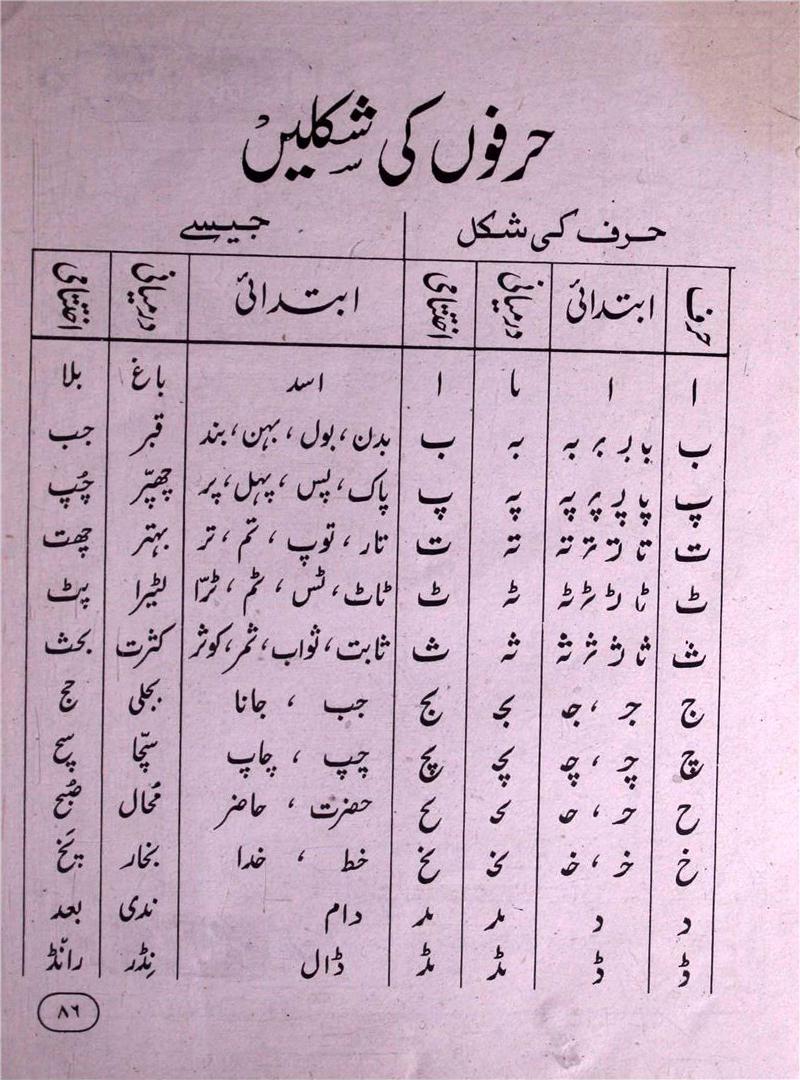 حرفوں کی شکلیں
حرف کی شکل جیسے
حرف ابتدائی درمیانی اختتامی ابتدائی درمیانی اختتامی
ا ا ـا ا اسد باغ بلا
ب بابربربہ بہ ب بدن، بول، بہن، بند قبر جب
پ پا پر پر پہ پہ پ پاک، پس، پہل، پر چھپّر چُپ
ت تا تر تر تہ تہ ت تار، توپ، تم، تر بہتر چھت
ٹ ٹا ٹر ٹر ٹہ ٹہ ٹ ٹاٹ، ٹس، ٹم، ٹرّا لٹیرا پٹ
ث ثا ثر ثر ثہ ثہ ث ثابت، ثواب، ثمر، کوثر کثرت بحث
ج جـ، جـ ـجـ ـج جب، جانا بجلی حج
چ چـ، چـ ـچـ ـچ چپ، چاپ سچّا سچ
ح حـ، حـ ـحـ ـح حضرت، حاضر مُحال صُبح
خ خـ، خـ ـخـ ـخ خط، خدا بخار یَخ
د د ـد ـد دام ندی بعد
ڈ ڈ ـڈ ـڈ ڈال نِڈر رانڈ
۸۶